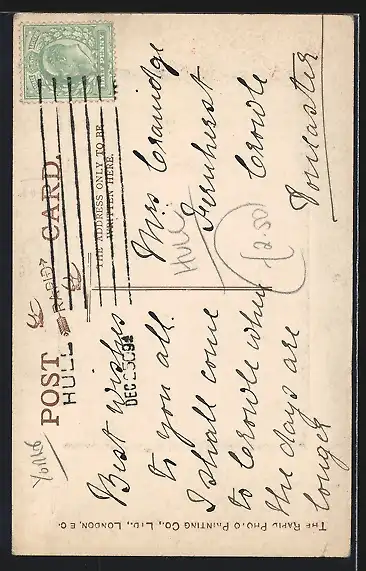 POST CARD.
RAPID
THE ADDRESS ONLY TO BE
WRITTEN HERE.
HULL
DEC 23 09
Best wishes
to you all.
I shall come
to Crowle when
the days are
longer
Mrs Cranidge
Fernhurst
Crowle
Doncaster
Hull
£2.50
Yorks
THE RAPID PHOTO PRINTING CO., LTD., LONDON, E.C.